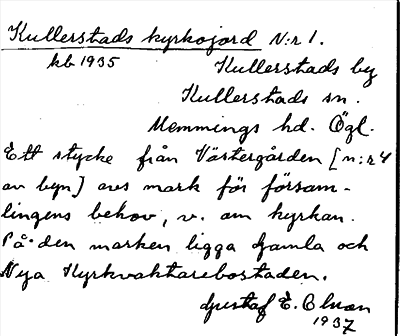 Kullerstads kyrkojord N:r 1.
kb 1935 Kullerstads by
Kullerstads sn.
Memmings hd. Ögl.
Ett stycke från Västergården [n:r 4
av byn] avs mark för försam-
lingens behov, v. om kyrkan.
På den marken ligga Gamla och
Nya Kyrkvaktarebostaden.
Gustaf E. Olsson
1937